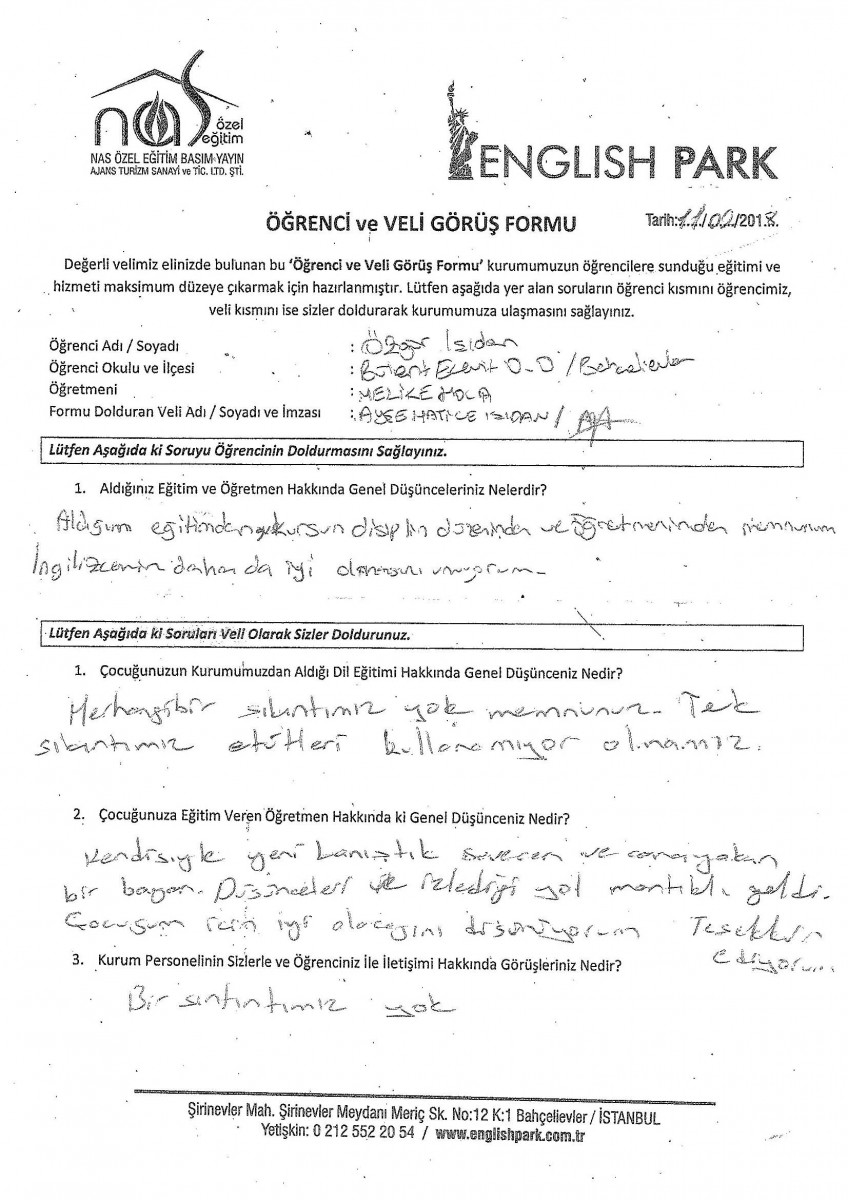 nas özel eğitim
NAS ÖZEL EĞİTİM BASIM YAYIN
AJANS TURİZM SANAYİ ve TİC. LTD. ŞTİ.
ENGLISH PARK
ÖĞRENCİ ve VELİ GÖRÜŞ FORMU
Tarih:11/02/2018.
Değerli velimiz elinizde bulunan bu 'Öğrenci ve Veli Görüş Formu' kurumumuzun öğrencilere sunduğu eğitimi ve
hizmeti maksimum düzeye çıkarmak için hazırlanmıştır. Lütfen aşağıda yer alan soruların öğrenci kısmını öğrencimiz,
veli kısmını ise sizler doldurarak kurumumuza ulaşmasını sağlayınız.
Öğrenci Adı / Soyadı : Özgür Isıdan
Öğrenci Okulu ve İlçesi : Bülent Ecevit O.O / Bahçelievler
Öğretmeni : MELİKE HOCA
Formu Dolduran Veli Adı / Soyadı ve İmzası : AYŞE HATİCE ISIDAN /
Lütfen Aşağıda ki Soruyu Öğrencinin Doldurmasını Sağlayınız.
1. Aldığınız Eğitim ve Öğretmen Hakkında Genel Düşünceleriniz Nelerdir?
Aldığım eğitimden kursun disiplin düzeninden ve öğretmeninden memnunum
İngilizcenin daha da iyi olmasını umuyorum-
Lütfen Aşağıda ki Soruları Veli Olarak Sizler Doldurunuz.
1. Çocuğunuzun Kurumumuzdan Aldığı Dil Eğitimi Hakkında Genel Düşünceniz Nedir?
Herhangibir sıkıntımız yok memnunuz- Tek
sıkıntımız etütleri kullanamıyor olmamız.
2. Çocuğunuza Eğitim Veren Öğretmen Hakkında ki Genel Düşünceniz Nedir?
Kendisiyle yeni tanıştık sevecen ve canayakın
bir bayan. Düşünceleri ve izlediği yol mantıklı geldi.
Çocuğum için iyi olacağını düşünüyorum Teşekkür
ediyorum
3. Kurum Personelinin Sizlerle ve Öğrenciniz İle İletişimi Hakkında Görüşleriniz Nedir?
Bir sıntıntımız yok
Şirinevler Mah. Şirinevler Meydanı Meriç Sk. No:12 K:1 Bahçelievler / İSTANBUL
Yetişkin: 0 212 552 20 54 / www.englishpark.com.tr